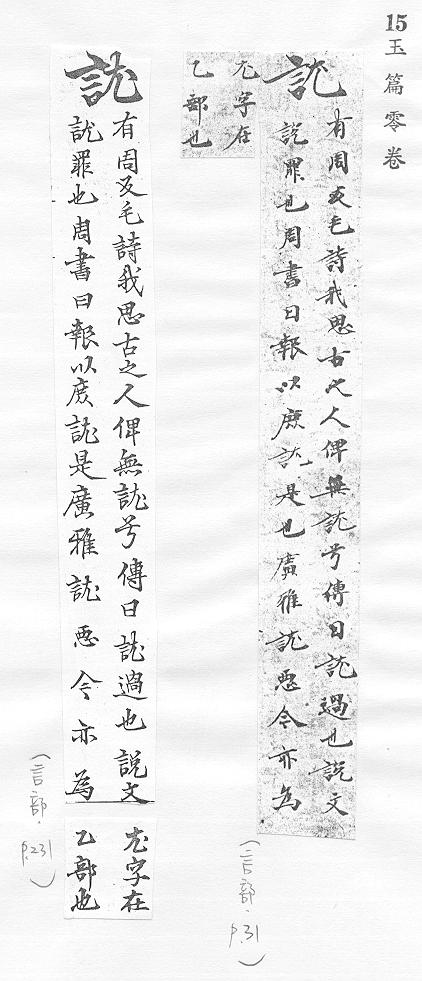 15 玉篇零卷
訧
有周反毛詩我思古之人俾無訧兮傳曰訧過也説文
説罪也周書曰報以庶訧是也廣雅訧惡今亦為
尤字在
乙部也
(言部.p.31)
訧
有周反毛詩我思古之人俾無訧兮傳曰訧過也説文
訧罪也周書曰報以庶訧是廣雅訧惡今亦為
尤字在
乙部也
(言部.p.231)